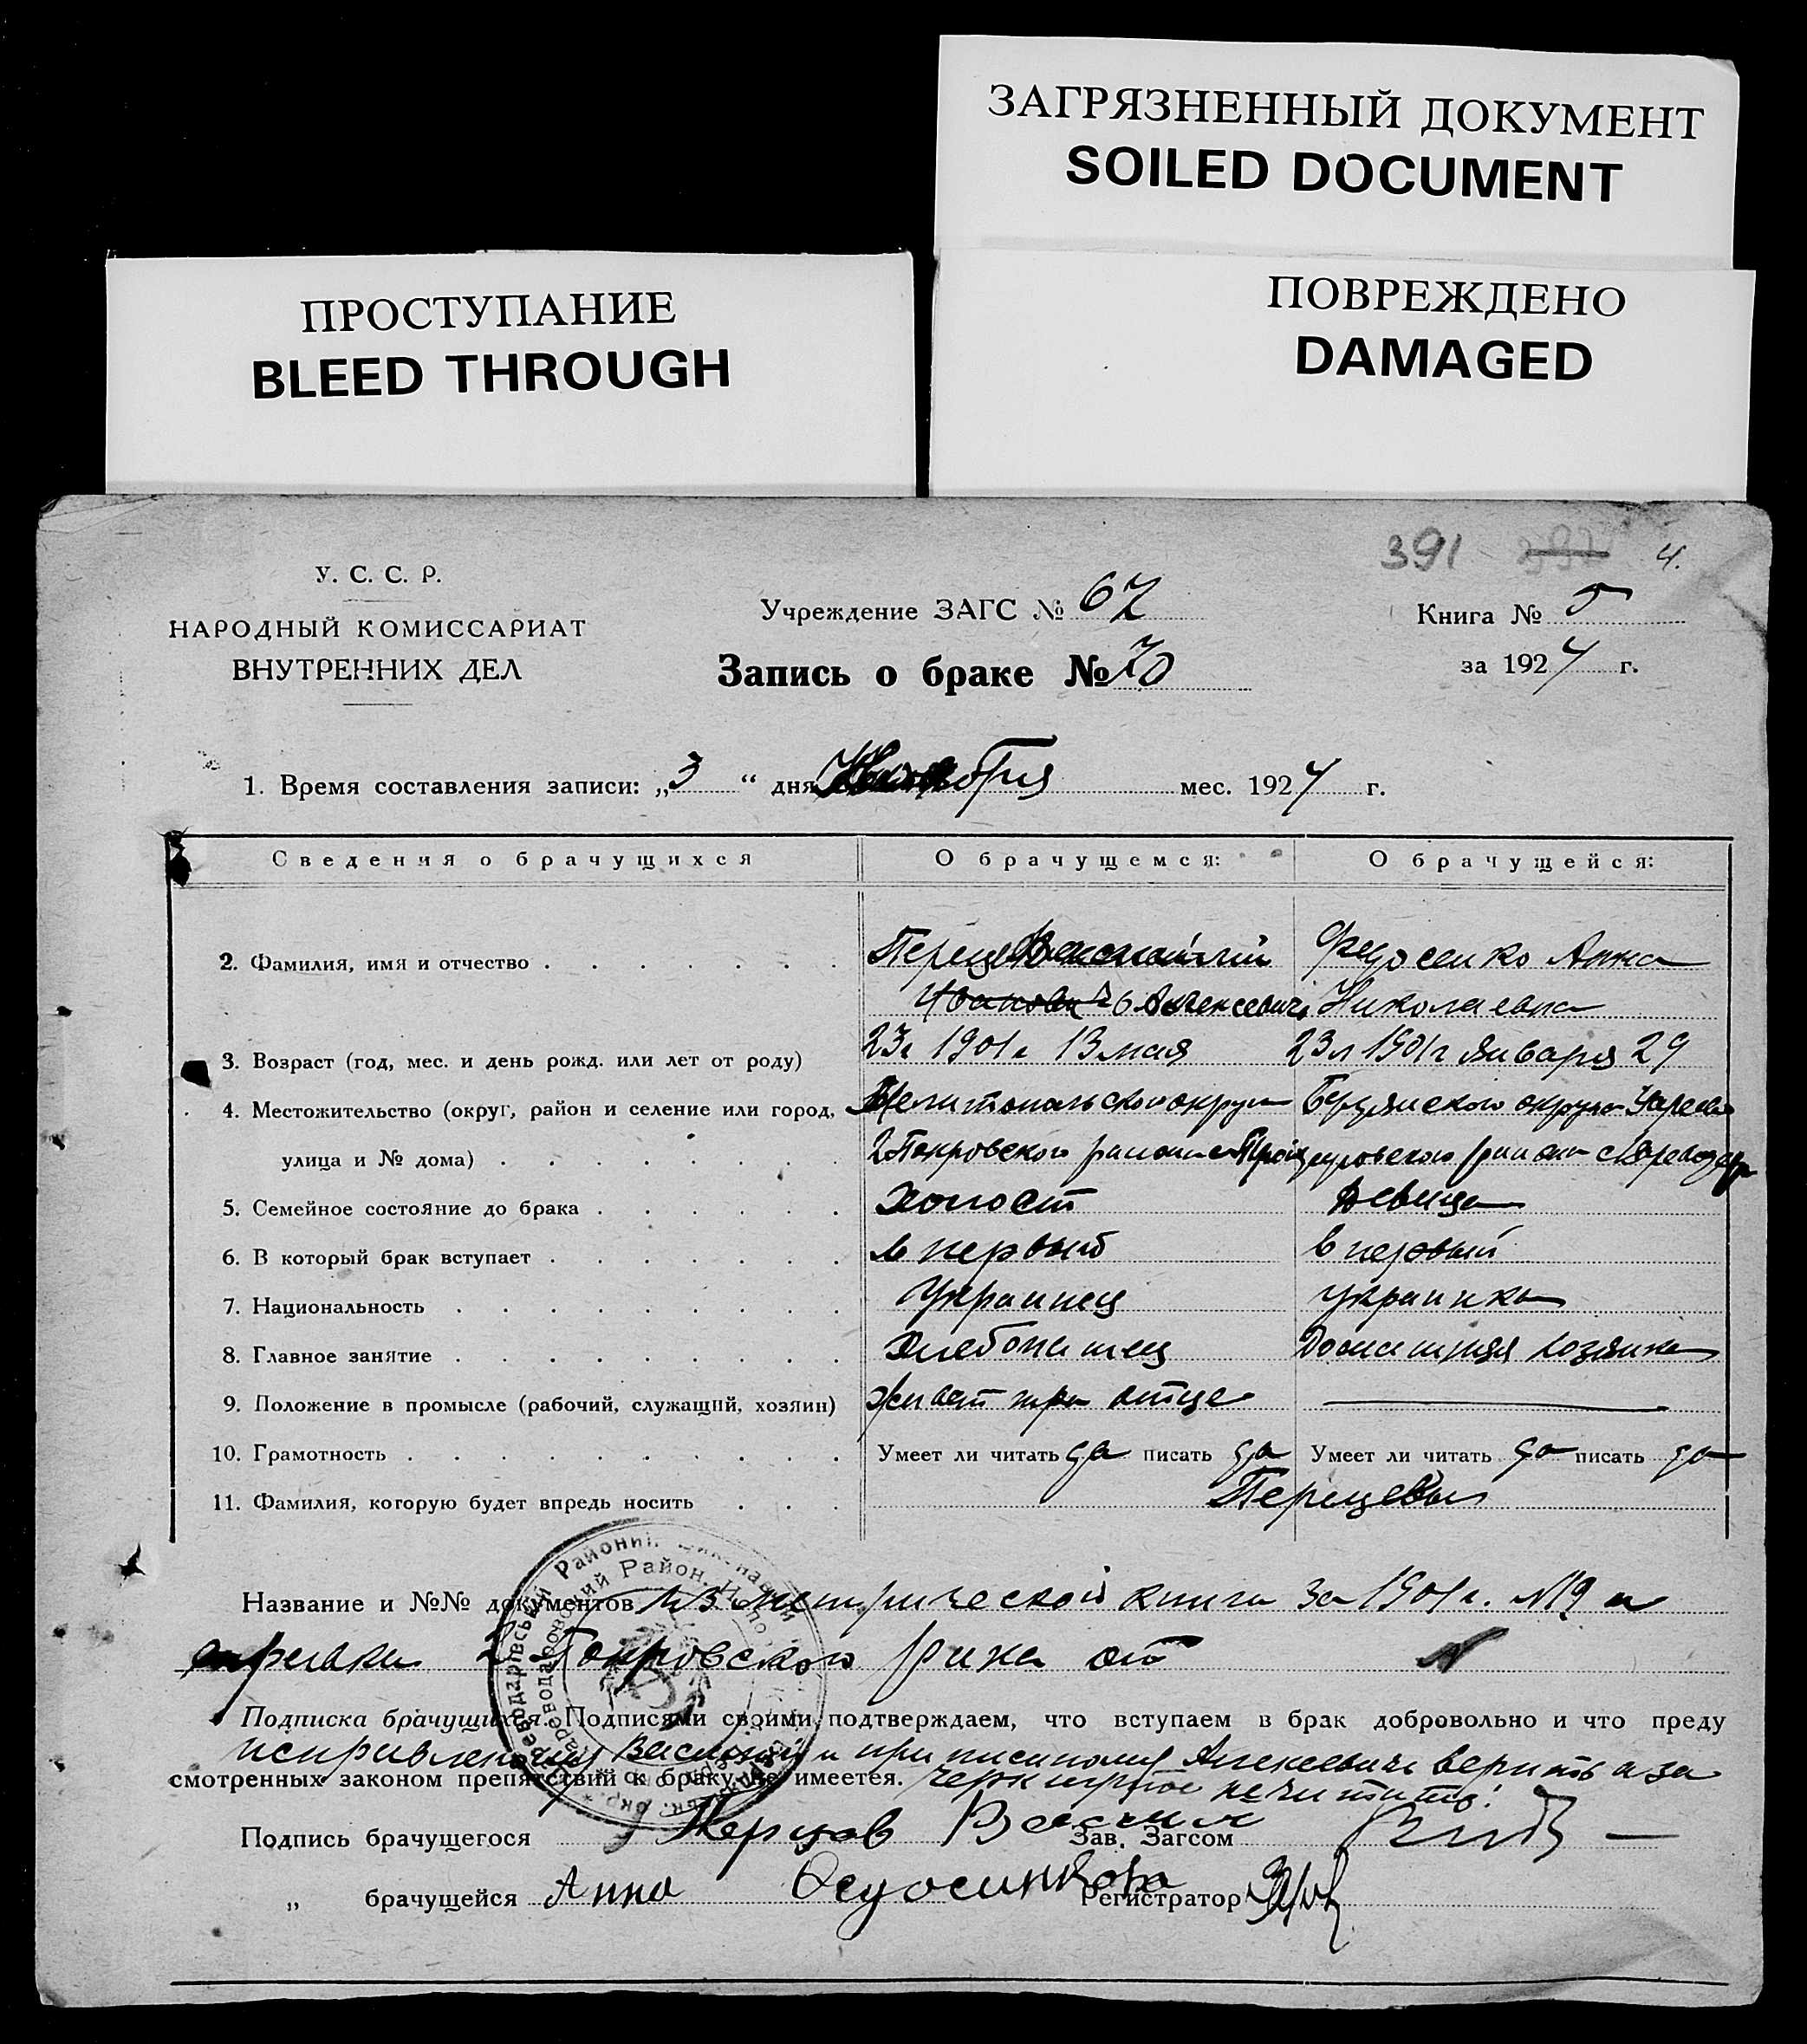 ЗАГРЯЗНЕННЫЙ ДОКУМЕНТ
SOILED DOCUMENT
ПРОСТУПАНИЕ
BLEED THROUGH
ПОВРЕЖДЕНО
DAMAGED
391 4.
У. С. С. Р.
НАРОДНЫЙ КОМИССАРИАТ
ВНУТРЕННИХ ДЕЛ
Учреждение ЗАГС № 67
Запись о браке № 70
Книга № 5
за 1924 г.
1. Время составления записи: „3“ дня мес. 1924 г.
Сведения о брачущихся О брачущемся: О брачущейся:
2. Фамилия, имя и отчество Перцев Василий Федосенко Анна
Алексеевич Николаевна
3. Возраст (год, мес. и день рожд. или лет от роду) 23л 1901г 13 мая 23л 1901г января 29
4. Местожительство (округ, район и селение или город, Мелитопольского округа Бердянского округа Царево
улица и № дома) 2 Покровского района даровского района
5. Семейное состояние до брака холост девица
6. В который брак вступает в первый в первый
7. Национальность Украинец украинка
8. Главное занятие Хлебопашец Домашняя хозяйка
9. Положение в промысле (рабочий, служащий, хозяин) живет при отце
10. Грамотность Умеет ли читать да писать да Умеет ли читать да писать да
11. Фамилия, которую будет впредь носить Перцевы
Название и №№ документов из метрической книги за 1901г. №19 и
справки 2 Покровского рика от N
Подписка брачущихся. Подписями своими подтверждаем, что вступаем в брак добровольно и что преду
исправленному Василий и приписанному Алексеевич верить а за
смотренных законом препятствий к браку не имеется. черкнутое не читать!
Подпись брачущегося Перцов Василий Зав. Загсом
„ брачущейся Анна Федосенкова Регистратор